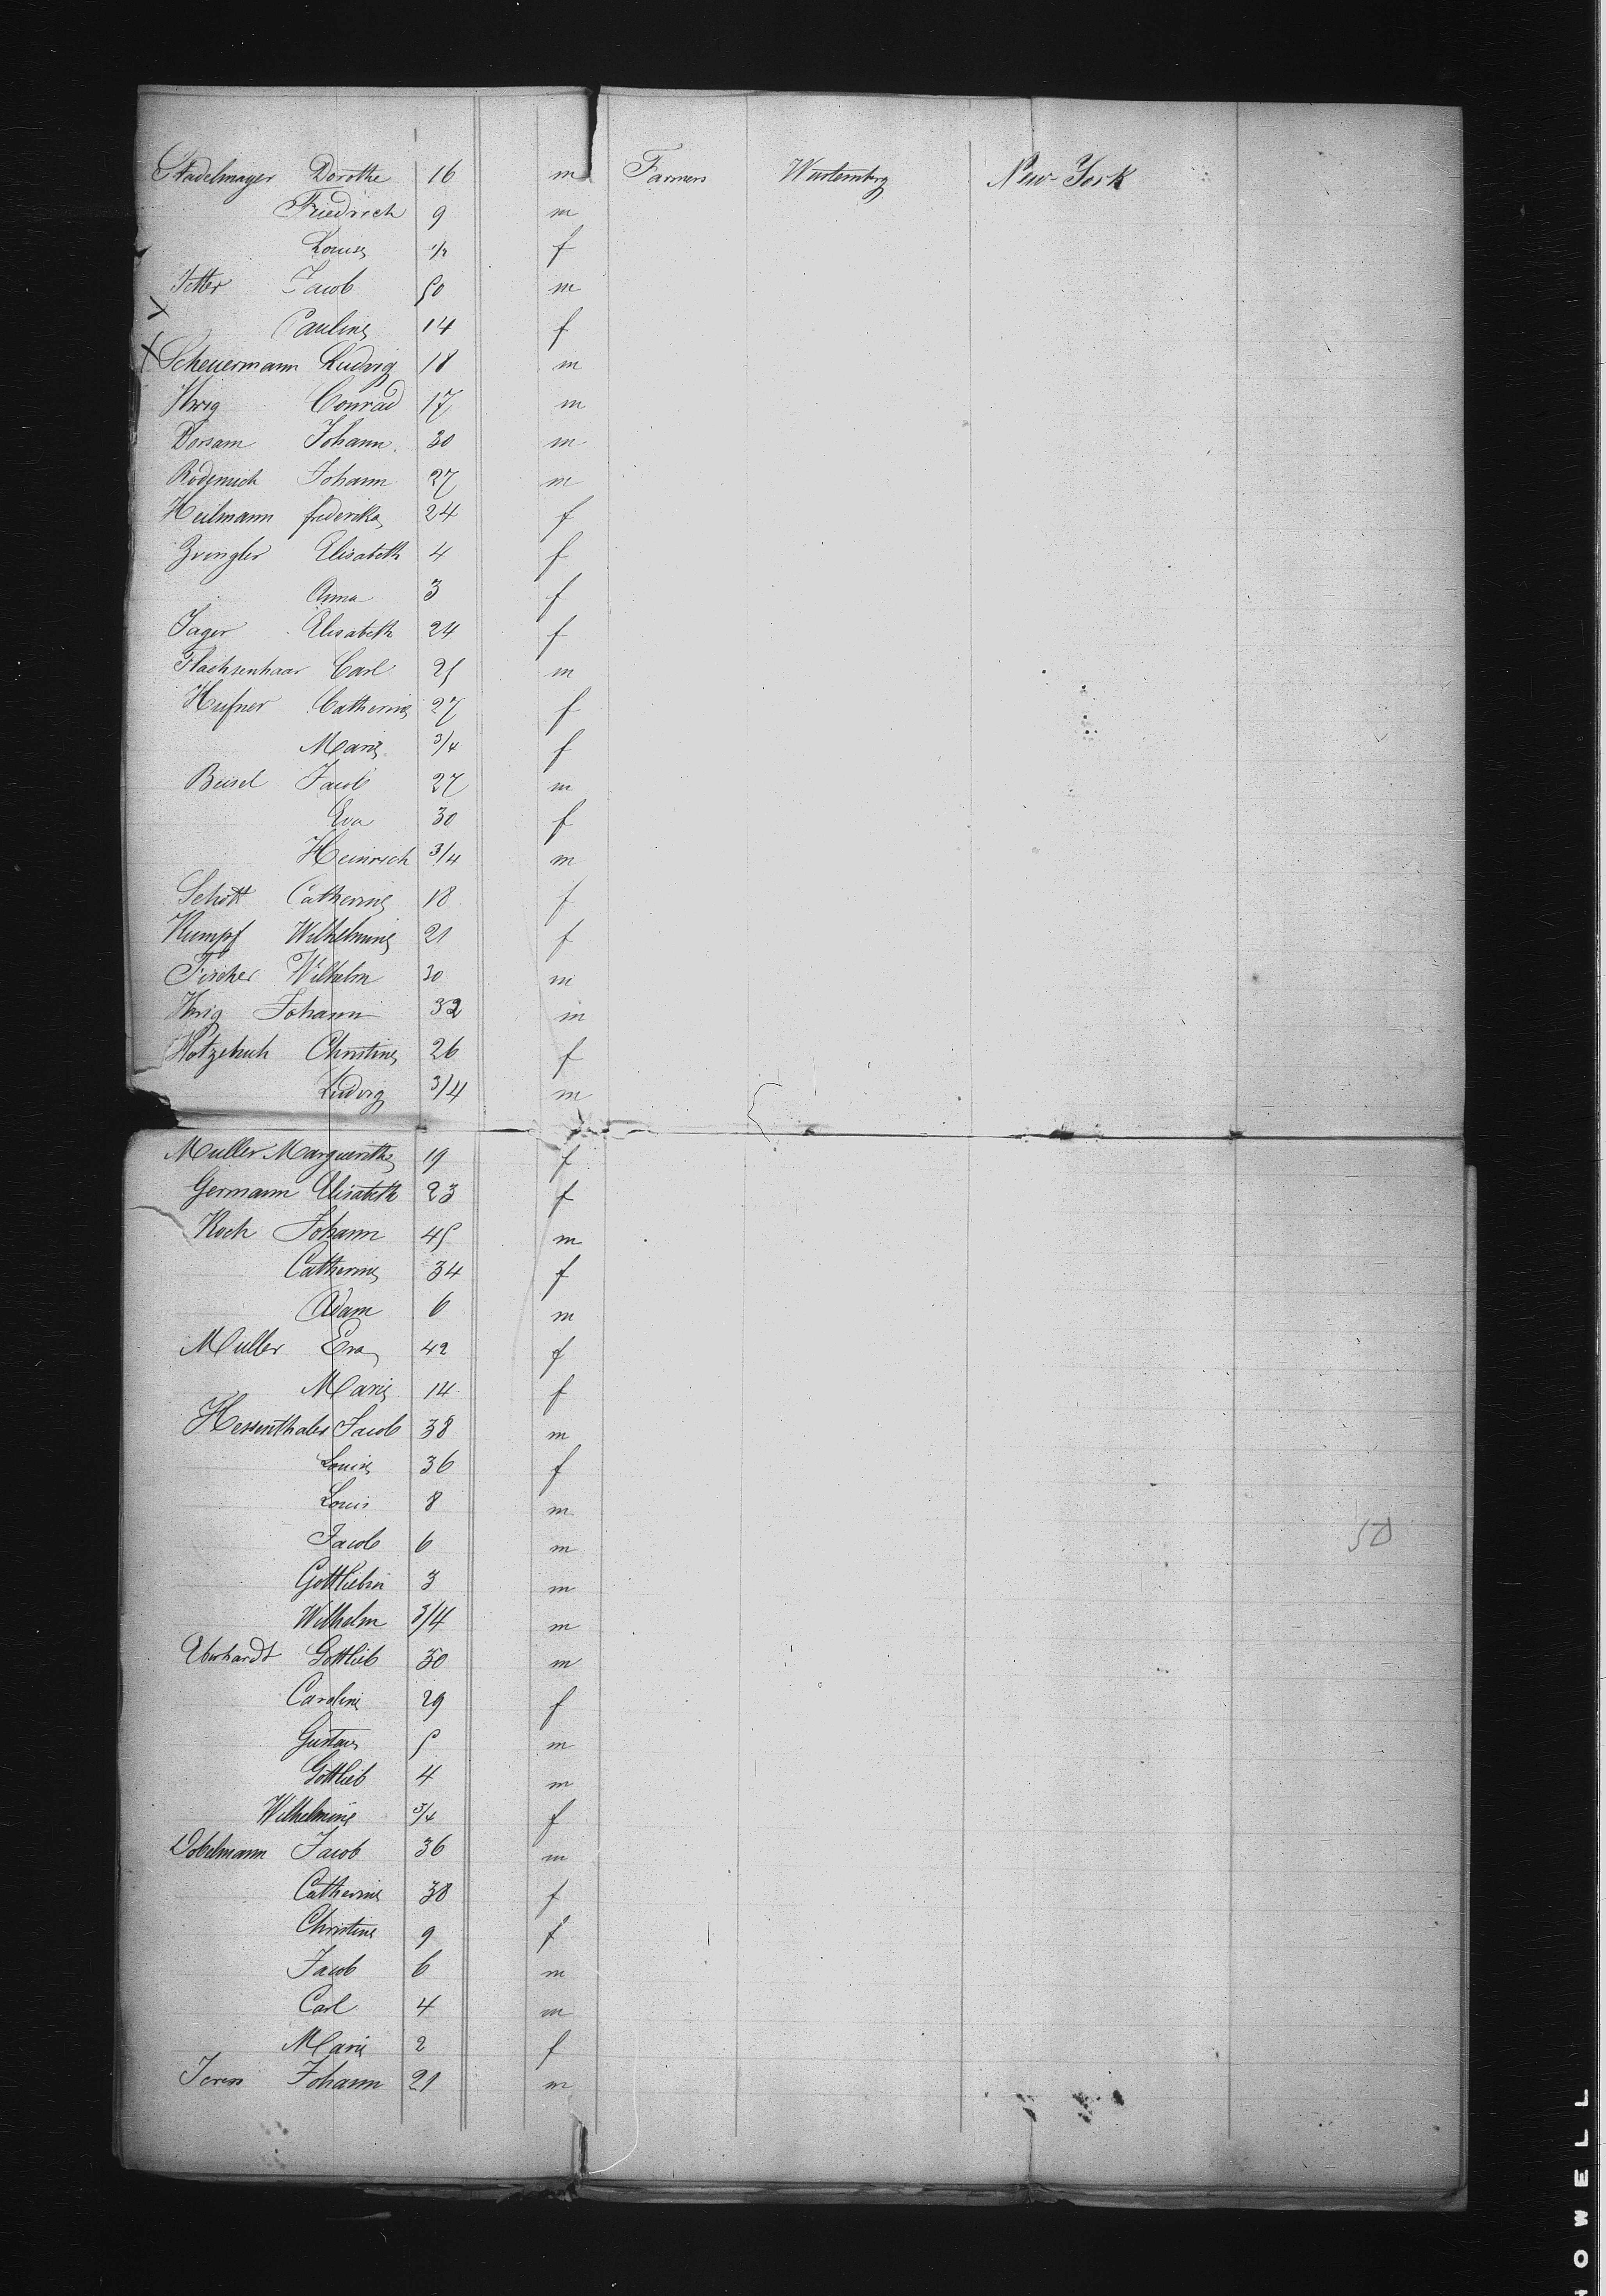 Stadelmayer Dorothe 16 m Farmers Wurtemberg New-York
Friedrich 9 m
Louise 1/2 f
Jetter Jacob 50 m
Pauline 14 f
Scheuermann Ludwig 18 m
Ihrig Conrad 17 m
Dorsam Johann 30 m
Johann 27 m
Heilmann frederika 24 f
Zwingler Elisabeth 4 f
Anna 3 f
Jager Elisabeth 24 f
Flachsenhaar Carl 25 m
Hufner Catherine 27 f
Marie 3/4 f
Beisel Jacob 27 m
Eva 30 f
Heinrich 3/4 m
Schott Catherine 18 f
Kumpf Wilhelmine 21 f
Fischer Wilhelm 30 m
Ihrig Johann 32 m
Christine 26 f
Ludwig 3/4 m
Muller Marguerithe 19 f
Germann Elisabeth 23 f
Koch Johann 45 m
Catherine 34 f
Adam 6 m
Muller Eva 42 f
Marie 14 f
Hessenthaler Jacob 38 m
Louise 36 f
Louis 8 m
Jacob 6 m
Gottliebin 3 m
Wilhelm 3/4 m
Eberhardt Gottlieb 30 m
Caroline 29 f
Gustav 5 m
Gottlieb 4 m
Wilhelmine 3/4 f
Dobelmann Jacob 36 m
Catherine 38 f
Christine 9 f
Jacob 6 m
Carl 4 m
Marie 2 f
Johann 21 m
50
HOWELL